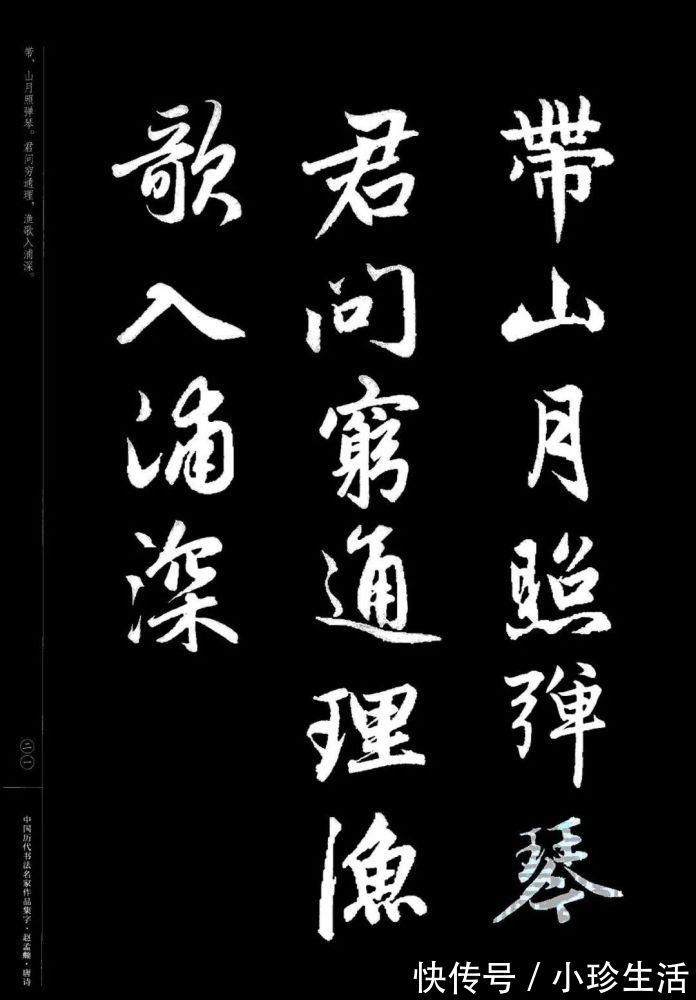 帶山月照彈琴
君問窮通理漁
歌入浦深
带、山月照弹琴。君问穷通理，渔歌入浦深。
二一
中国历代书法名家作品集字·赵孟頫·唐诗
快传号/小珍生活